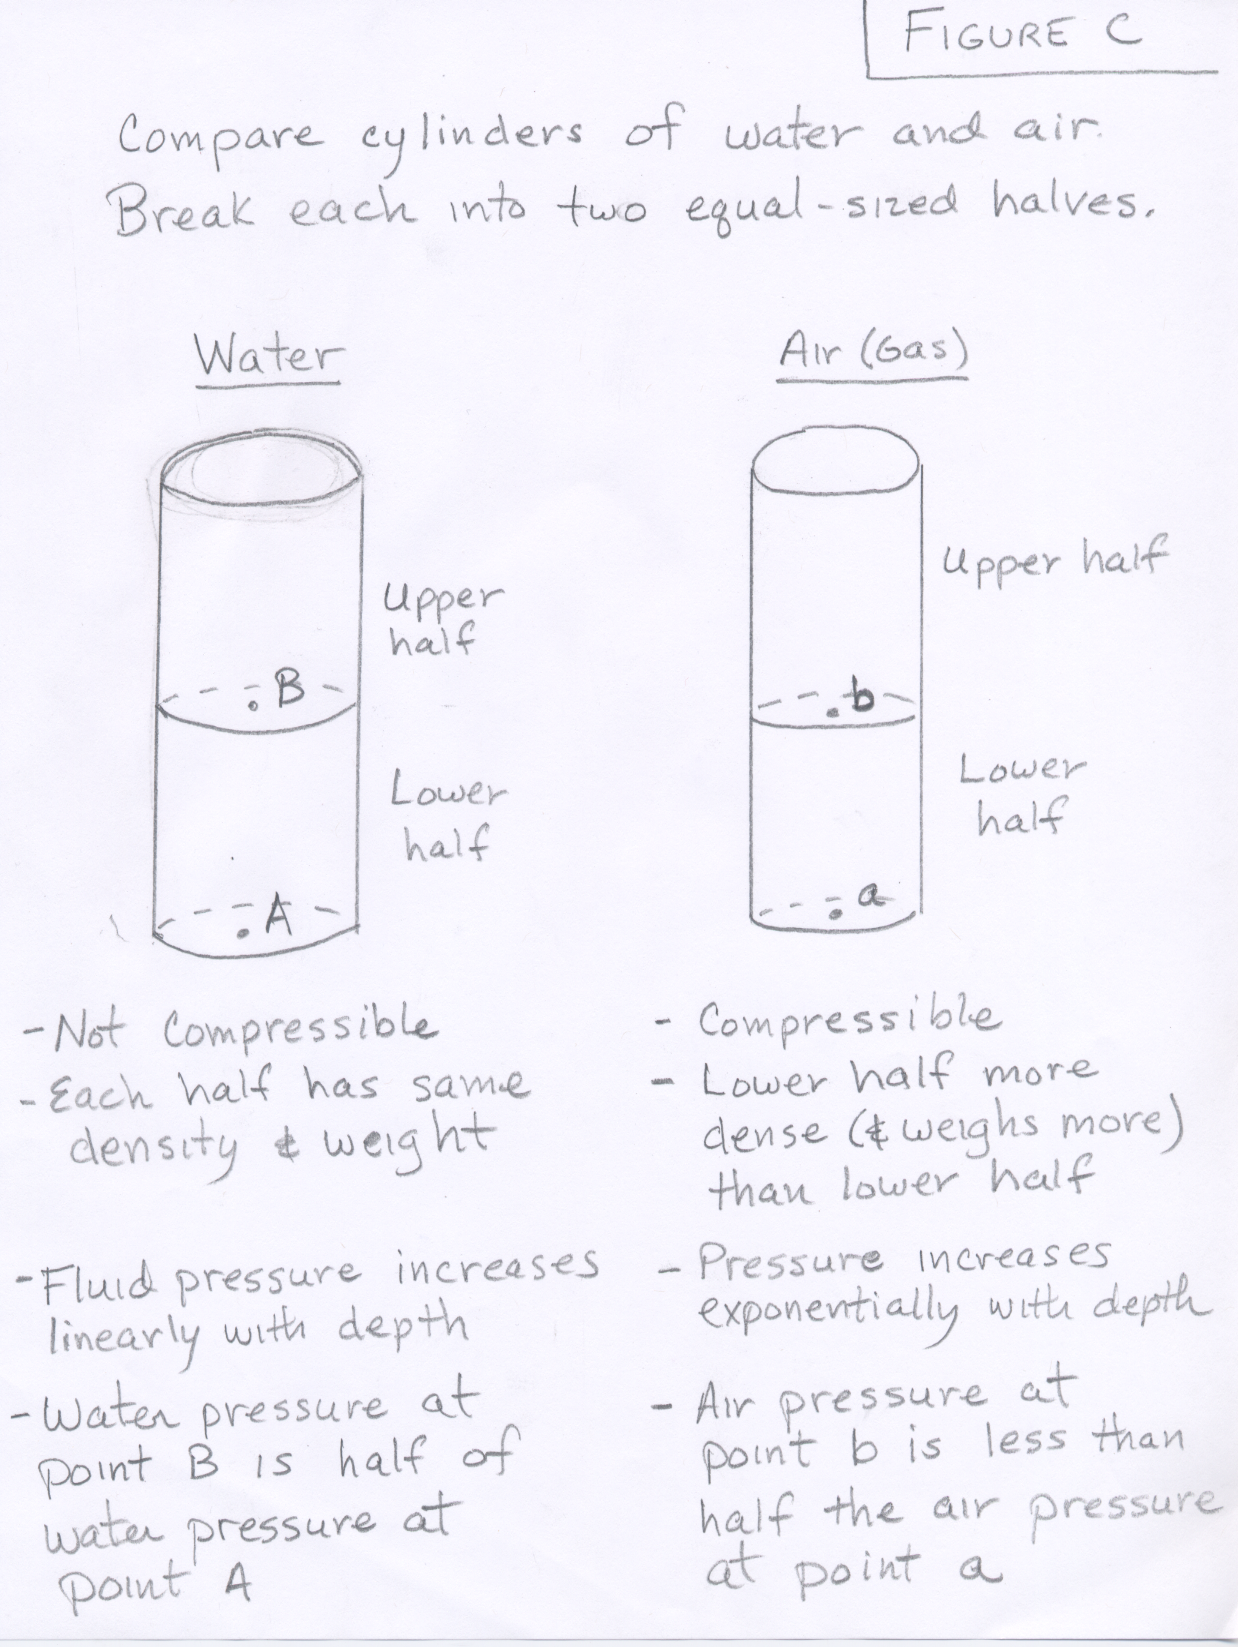 FIGURE C
Compare cylinders of water and air.
Break each into two equal-sized halves.
Water
Upper
half
B
Lower
half
A
- Not Compressible
- Each half has same
density & weight
- Fluid pressure increases
linearly with depth
- Water pressure at
point B is half of
water pressure at
point A
Air (Gas)
Upper half
b
Lower
half
a
- Compressible
- Lower half more
dense (& weighs more)
than lower half
- Pressure increases
exponentially with depth
- Air pressure at
point b is less than
half the air pressure
at point a